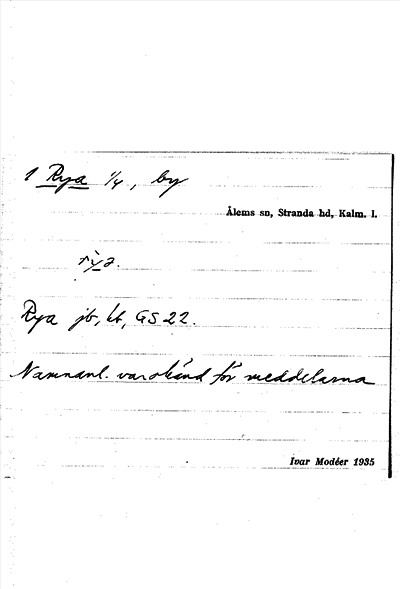 1 Rya 1/4, by
Ålems sn, Stranda hd, Kalm. l.
rỳ̱ə.
Rya jb, kb, GS 22.
Namnanl. var okänd för meddelarna
Ivar Modéer 1935